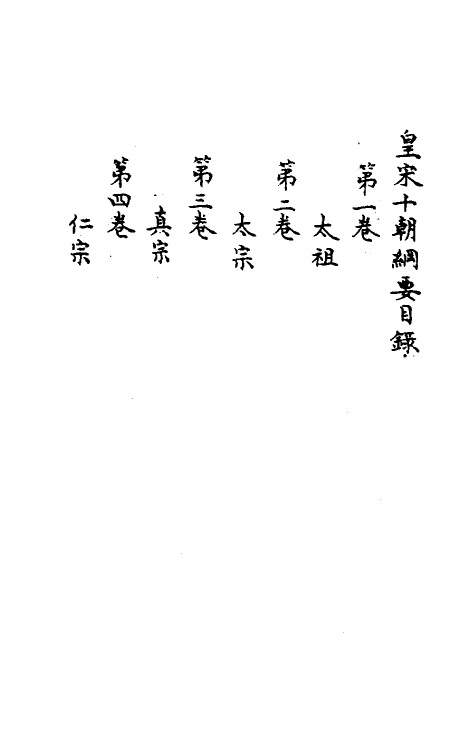 皇宋十朝綱要目錄
第一卷
太祖
第二卷
太宗
第三卷
真宗
第四卷
仁宗